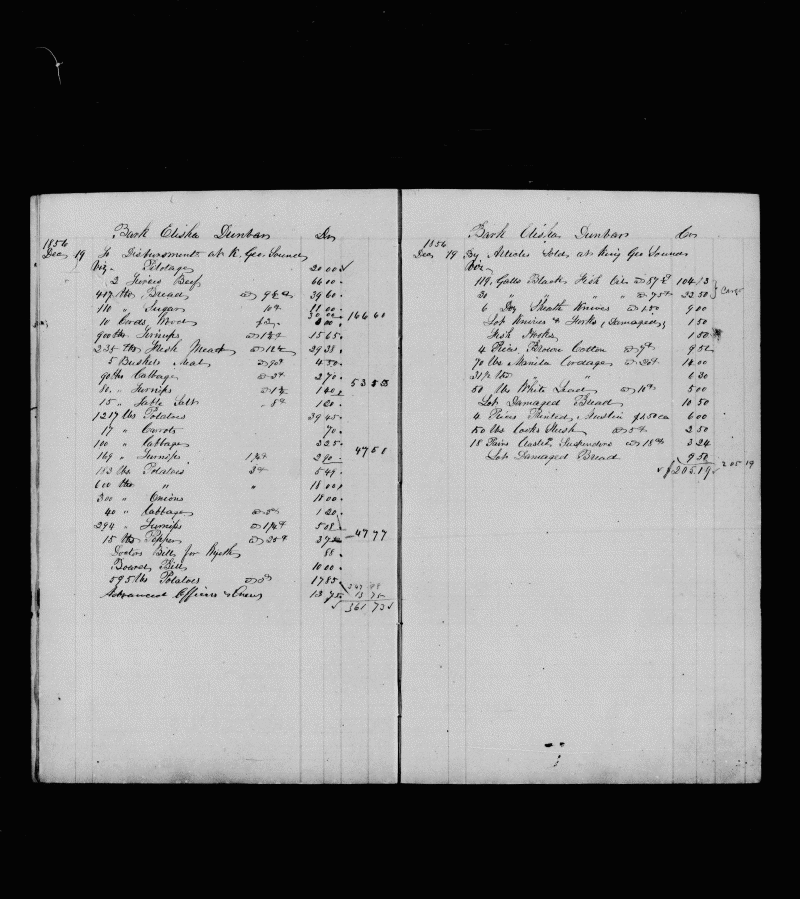 Bark Elisha Dunbar Dr
1856
Dec 19 To Disbursments at K. Geo Sound
Viz - Pilotage 20 00
2 Tierces Beef 66 00
417 lbs Bread @ 9½ c 39 60
110 " Sugar 10c 11 00
10 Cords Wood 30 00 166 60
900 lbs Turnips 15 65
235 lbs Fresh Meat @ 12½ 29 38
5 Bushels Meal @ 90c 4 50
90 lbs Cabbage @ 3c 2 70 53 53
80 " Turnips @ 1¾ 1 40
15 " Table Salt " 8c 1 20
1217 lbs Potatoes 39 45
17 " Carrots 70
100 " Cabbages 3 25
169 " Turnips 1¾c 2 90 47 51
183 lbs Potatoes 3c 5 49
600 lbs " " 18 00
300 " Onions 18 00
40 " Cabbages @ 3c 1 20
294 " Turnips @ 1¾c 5 08
15 lbs Pepper @ 25c 3 75 47 77
Doctors Bill for
Board Bill 10 00
595 lbs Potatoes @ 3c 17 85
Advanced Officers & Crew 13 75
361 73
Bark Elisha Dunbar Cr
1856
Dec 19 By Articles Sold at King Geo Sound
Viz
119 Galls Black Fish Oil @ 87½c 104 13
30 " " " " @ 75c 22 50 Cargo
6 Doz Sheath Knives @ 1.50 9 00
Lot Knives & Forks, Damaged, 1 50
Fish Hooks 1 50
4 Pieces Brown Cotton 9 52
70 lbs Manila Cordage 14 00
31½ lbs 6 30
50 lbs White Lead @ 10c 5 00
Lot Damaged Bread 10 50
4 Pieces Printed Muslin 1.50 ea 6 00
50 lbs Cooks Slush @ 5c 2 50
18 Pairs Elastic Suspenders @ 18c 3 24
Lot Damaged Bread 9 50
$205.19 205 19